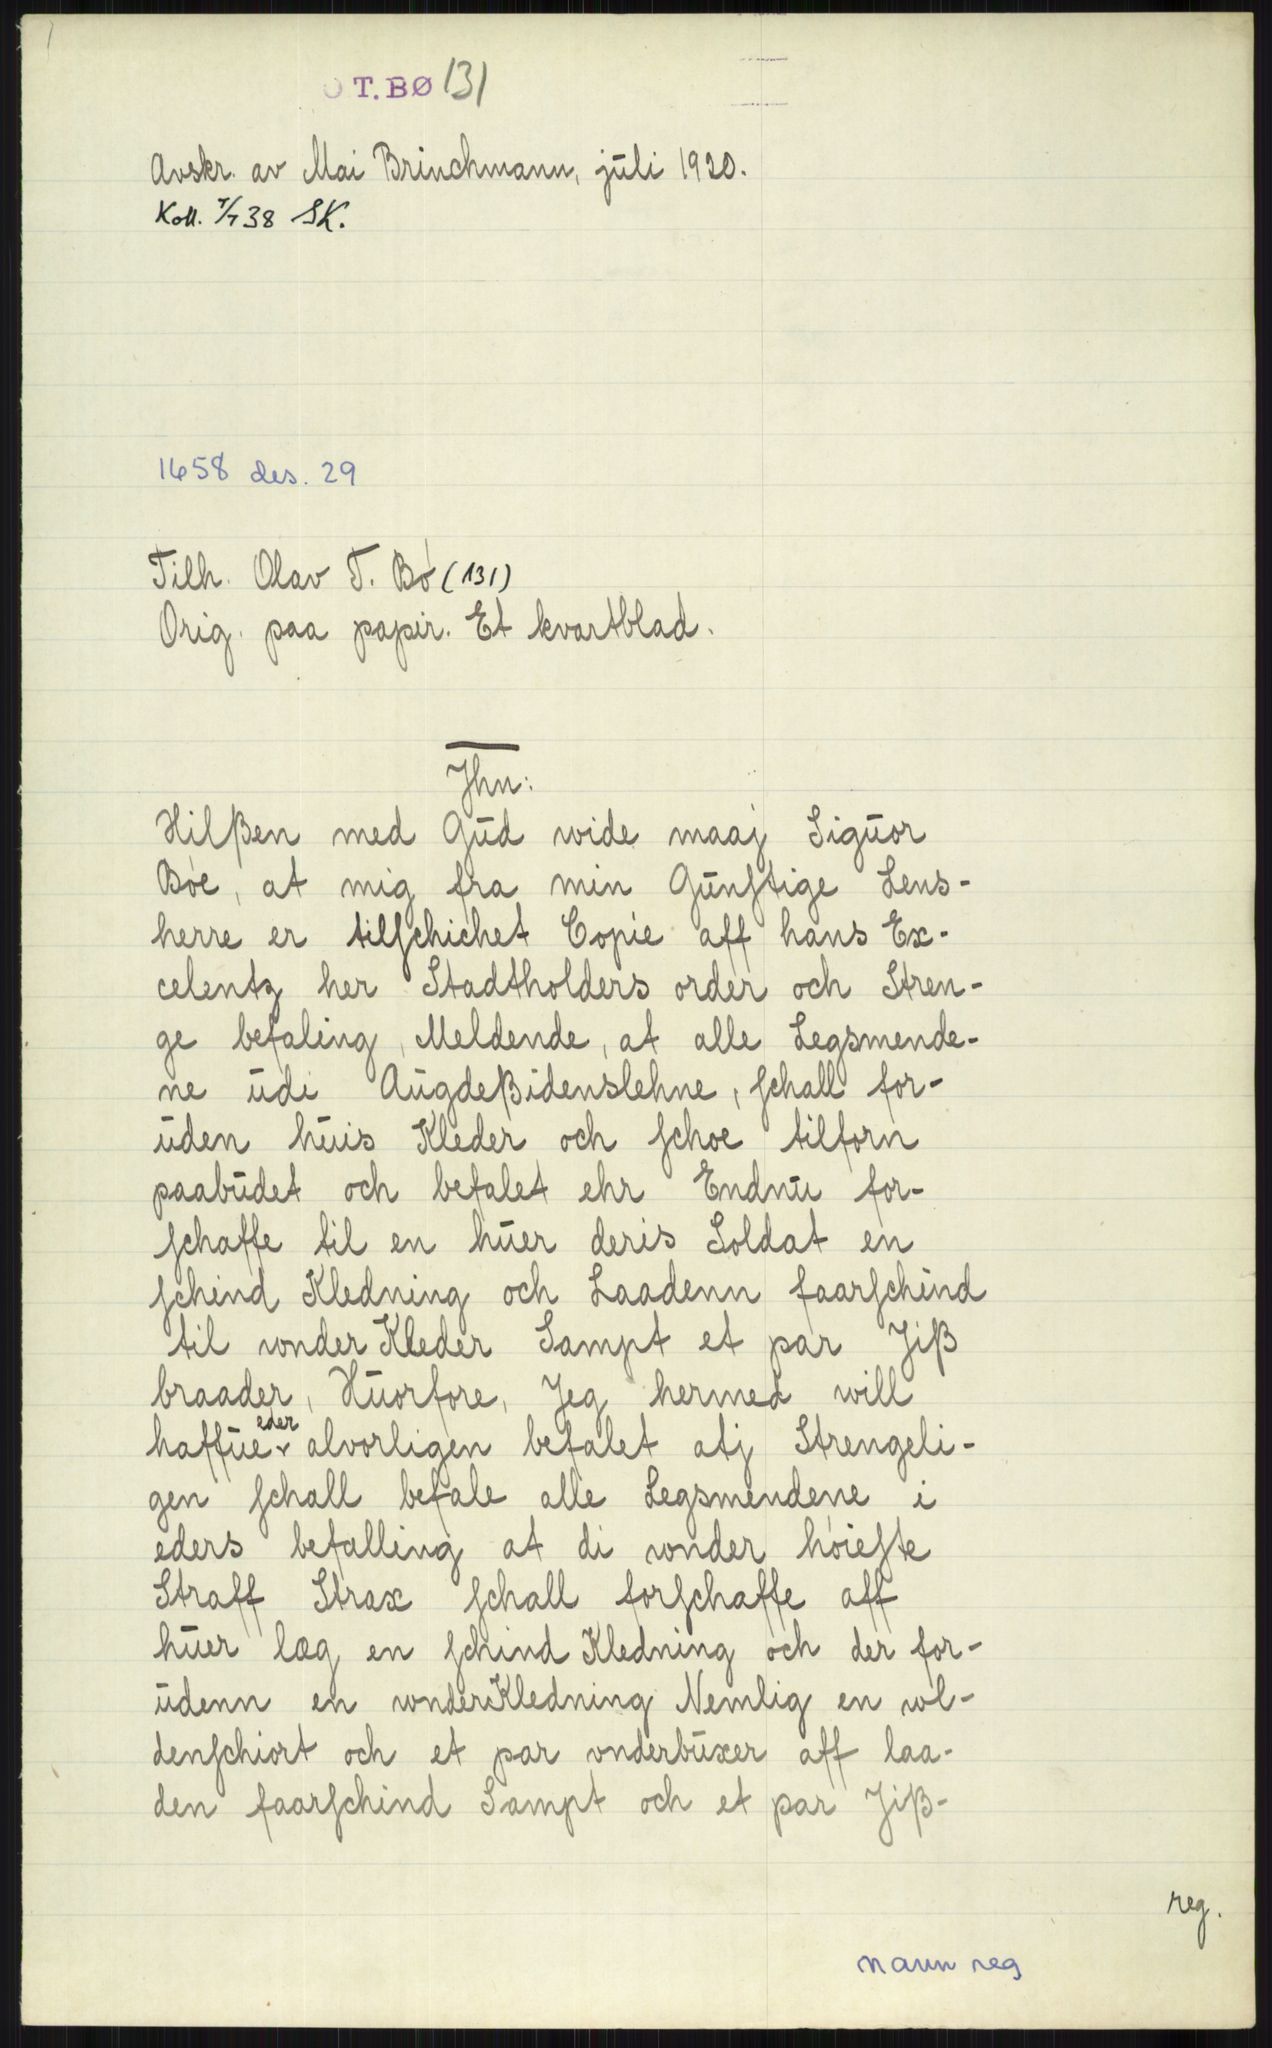 O T. BØ 131
Avskr. av Mai Brinchmann, juli 1920.
Koll. 7/7 38 SK.
1658 des. 29
Tilh. Olav T. Bø (131)
Orig. paa papir. Et kvartblad.
Jhn:
Hilßen med Gud wide maaj Siguor
Bøe, at mig fra min Gunstige Lens-
herre er tilschichet Copie aff hans Ex-
celentz her Stadtholders order och Stren-
ge befaling, Meldende, at alle Legsmende-
ne udi Augdeßidenslehne, schall for-
uden huis Kleder och schoe tilforn
paabudet och befalet ehr Endnu for-
schaffe til en huer deris Soldat en
schind Kledning och Laadenn faarschind
til wnder Kleder Sampt et par Jiß
braader, Huorfore, Jeg hermed will
haffue eder alvorligen befalet atj Strengeli-
gen schall befale alle Legsmendene i
eders befalling at di wnder høieste
Straff Strax schall forschaffe aff
huer læg en schind Kledning och der for-
udenn en wnderKledning Nemlig en wl-
denschiort och et par vnderbuxer aff laa-
den faarschind Sampt och et par Jiß-
reg.
navn reg